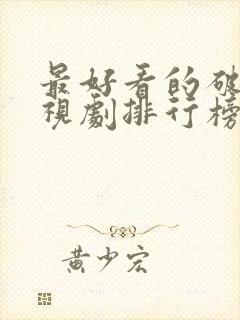 最好看的破
視劇排行榜
黄少宏